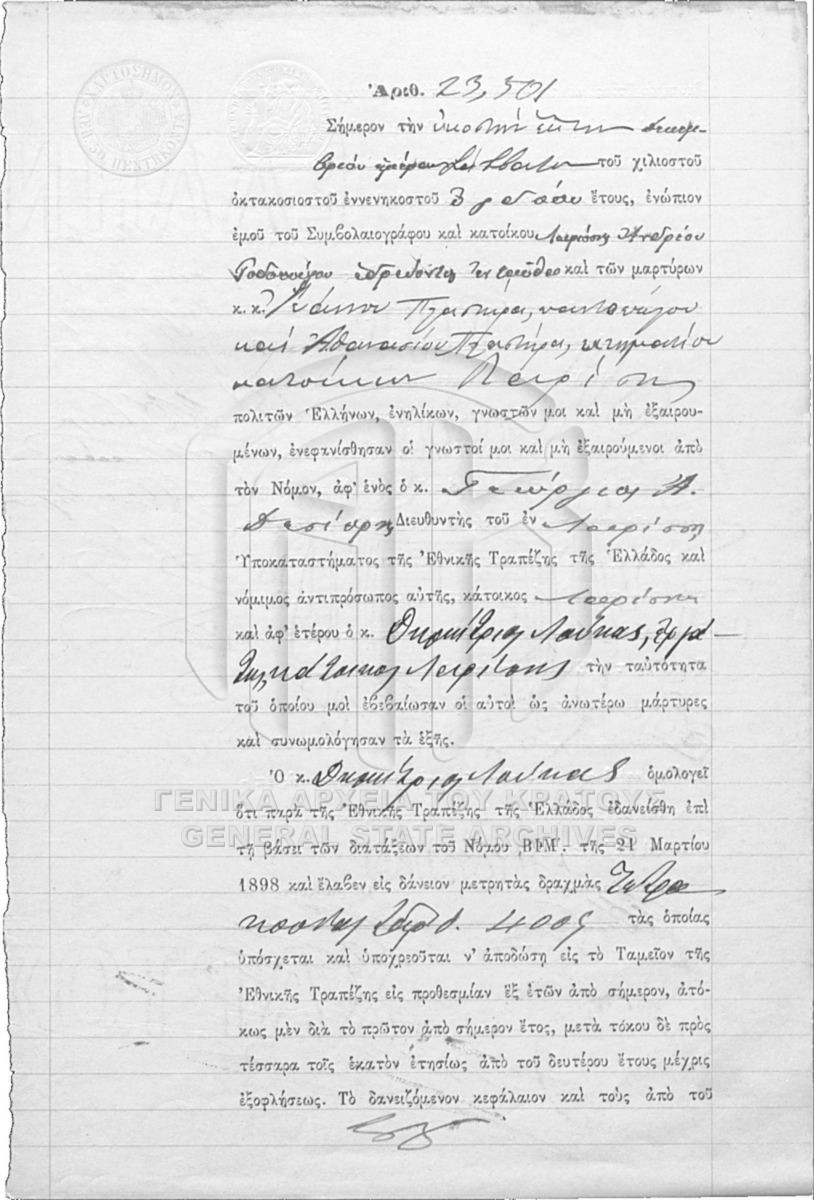 ΧΑΡΤΟΣΗΜΟΝ
ΠΕΝΤΗΚΟΝΤΑ
Ἀριθ. 23,501
Σήμερον τὴν εἰκοστὴν ἕκτην Δεκεμ-
βρίου ἡμέραν Σάββατον τοῦ χιλιοστοῦ
ὀκτακοσιοστοῦ ἐννενηκοστοῦ ὀγδόου ἔτους, ἐνώπιον
ἐμοῦ τοῦ Συμβολαιογράφου καὶ κατοίκου Λαρίσσης Ἀνδρέου
Ροδοπούλου ἑδρεύοντος καὶ τῶν μαρτύρων
κ. κ. Ἰωάννου Πλαστήρα,
καὶ Ἀθανασίου Πλαστήρα, κτηματίου
κατοίκων Λαρίσης
πολιτῶν Ἑλλήνων, ἐνηλίκων, γνωστῶν μοι καὶ μὴ ἐξαιρου-
μένων, ἐνεφανίσθησαν οἱ γνωστοί μοι καὶ μὴ ἐξαιρούμενοι ἀπὸ
τὸν Νόμον, ἀφ' ἑνὸς ὁ κ. Γεώργιος Α.
Διευθυντὴς τοῦ ἐν Λαρίσσῃ
Ὑποκαταστήματος τῆς Ἐθνικῆς Τραπέζης τῆς Ἑλλάδος καὶ
νόμιμος ἀντιπρόσωπος αὐτῆς, κάτοικος Λαρίσης
καὶ ἀφ' ἑτέρου ὁ κ. Δημήτριος Λούκας, ἐργά-
της κάτοικος Λαρίσσης τὴν ταὐτότητα
τοῦ ὁποίου μοὶ ἐβεβαίωσαν οἱ αὐτοὶ ὡς ἀνωτέρω μάρτυρες
καὶ συνωμολόγησαν τὰ ἑξῆς.
Ὁ κ. Δημήτριος Λούκας ὁμολογεῖ
ΓΕΝΙΚΑ ΑΡΧΕΙΑ ΤΟΥ ΚΡΑΤΟΥΣ
ὅτι παρὰ τῆς Ἐθνικῆς Τραπέζης τῆς Ἑλλάδος ἐδανείσθη ἐπὶ
GENERAL STATE ARCHIVES
τῇ βάσει τῶν διατάξεων τοῦ Νόμου ΒΦΜ'. τῆς 21 Μαρτίου
1898 καὶ ἔλαβεν εἰς δάνειον μετρητὰς δραχμὰς Τετρα
κοσίας ἀριθ. 400 τὰς ὁποίας
ὑπόσχεται καὶ ὑποχρεοῦται ν' ἀποδώσῃ εἰς τὸ Ταμεῖον τῆς
Ἐθνικῆς Τραπέζης εἰς προθεσμίαν ἓξ ἐτῶν ἀπὸ σήμερον, ἀτό-
κως μὲν διὰ τὸ πρῶτον ἀπὸ σήμερον ἔτος, μετὰ τόκου δὲ πρὸς
τέσσαρα τοῖς ἑκατὸν ἐτησίως ἀπὸ τοῦ δευτέρου ἔτους μέχρις
ἐξοφλήσεως. Τὸ δανειζόμενον κεφάλαιον καὶ τοὺς ἀπὸ τοῦ